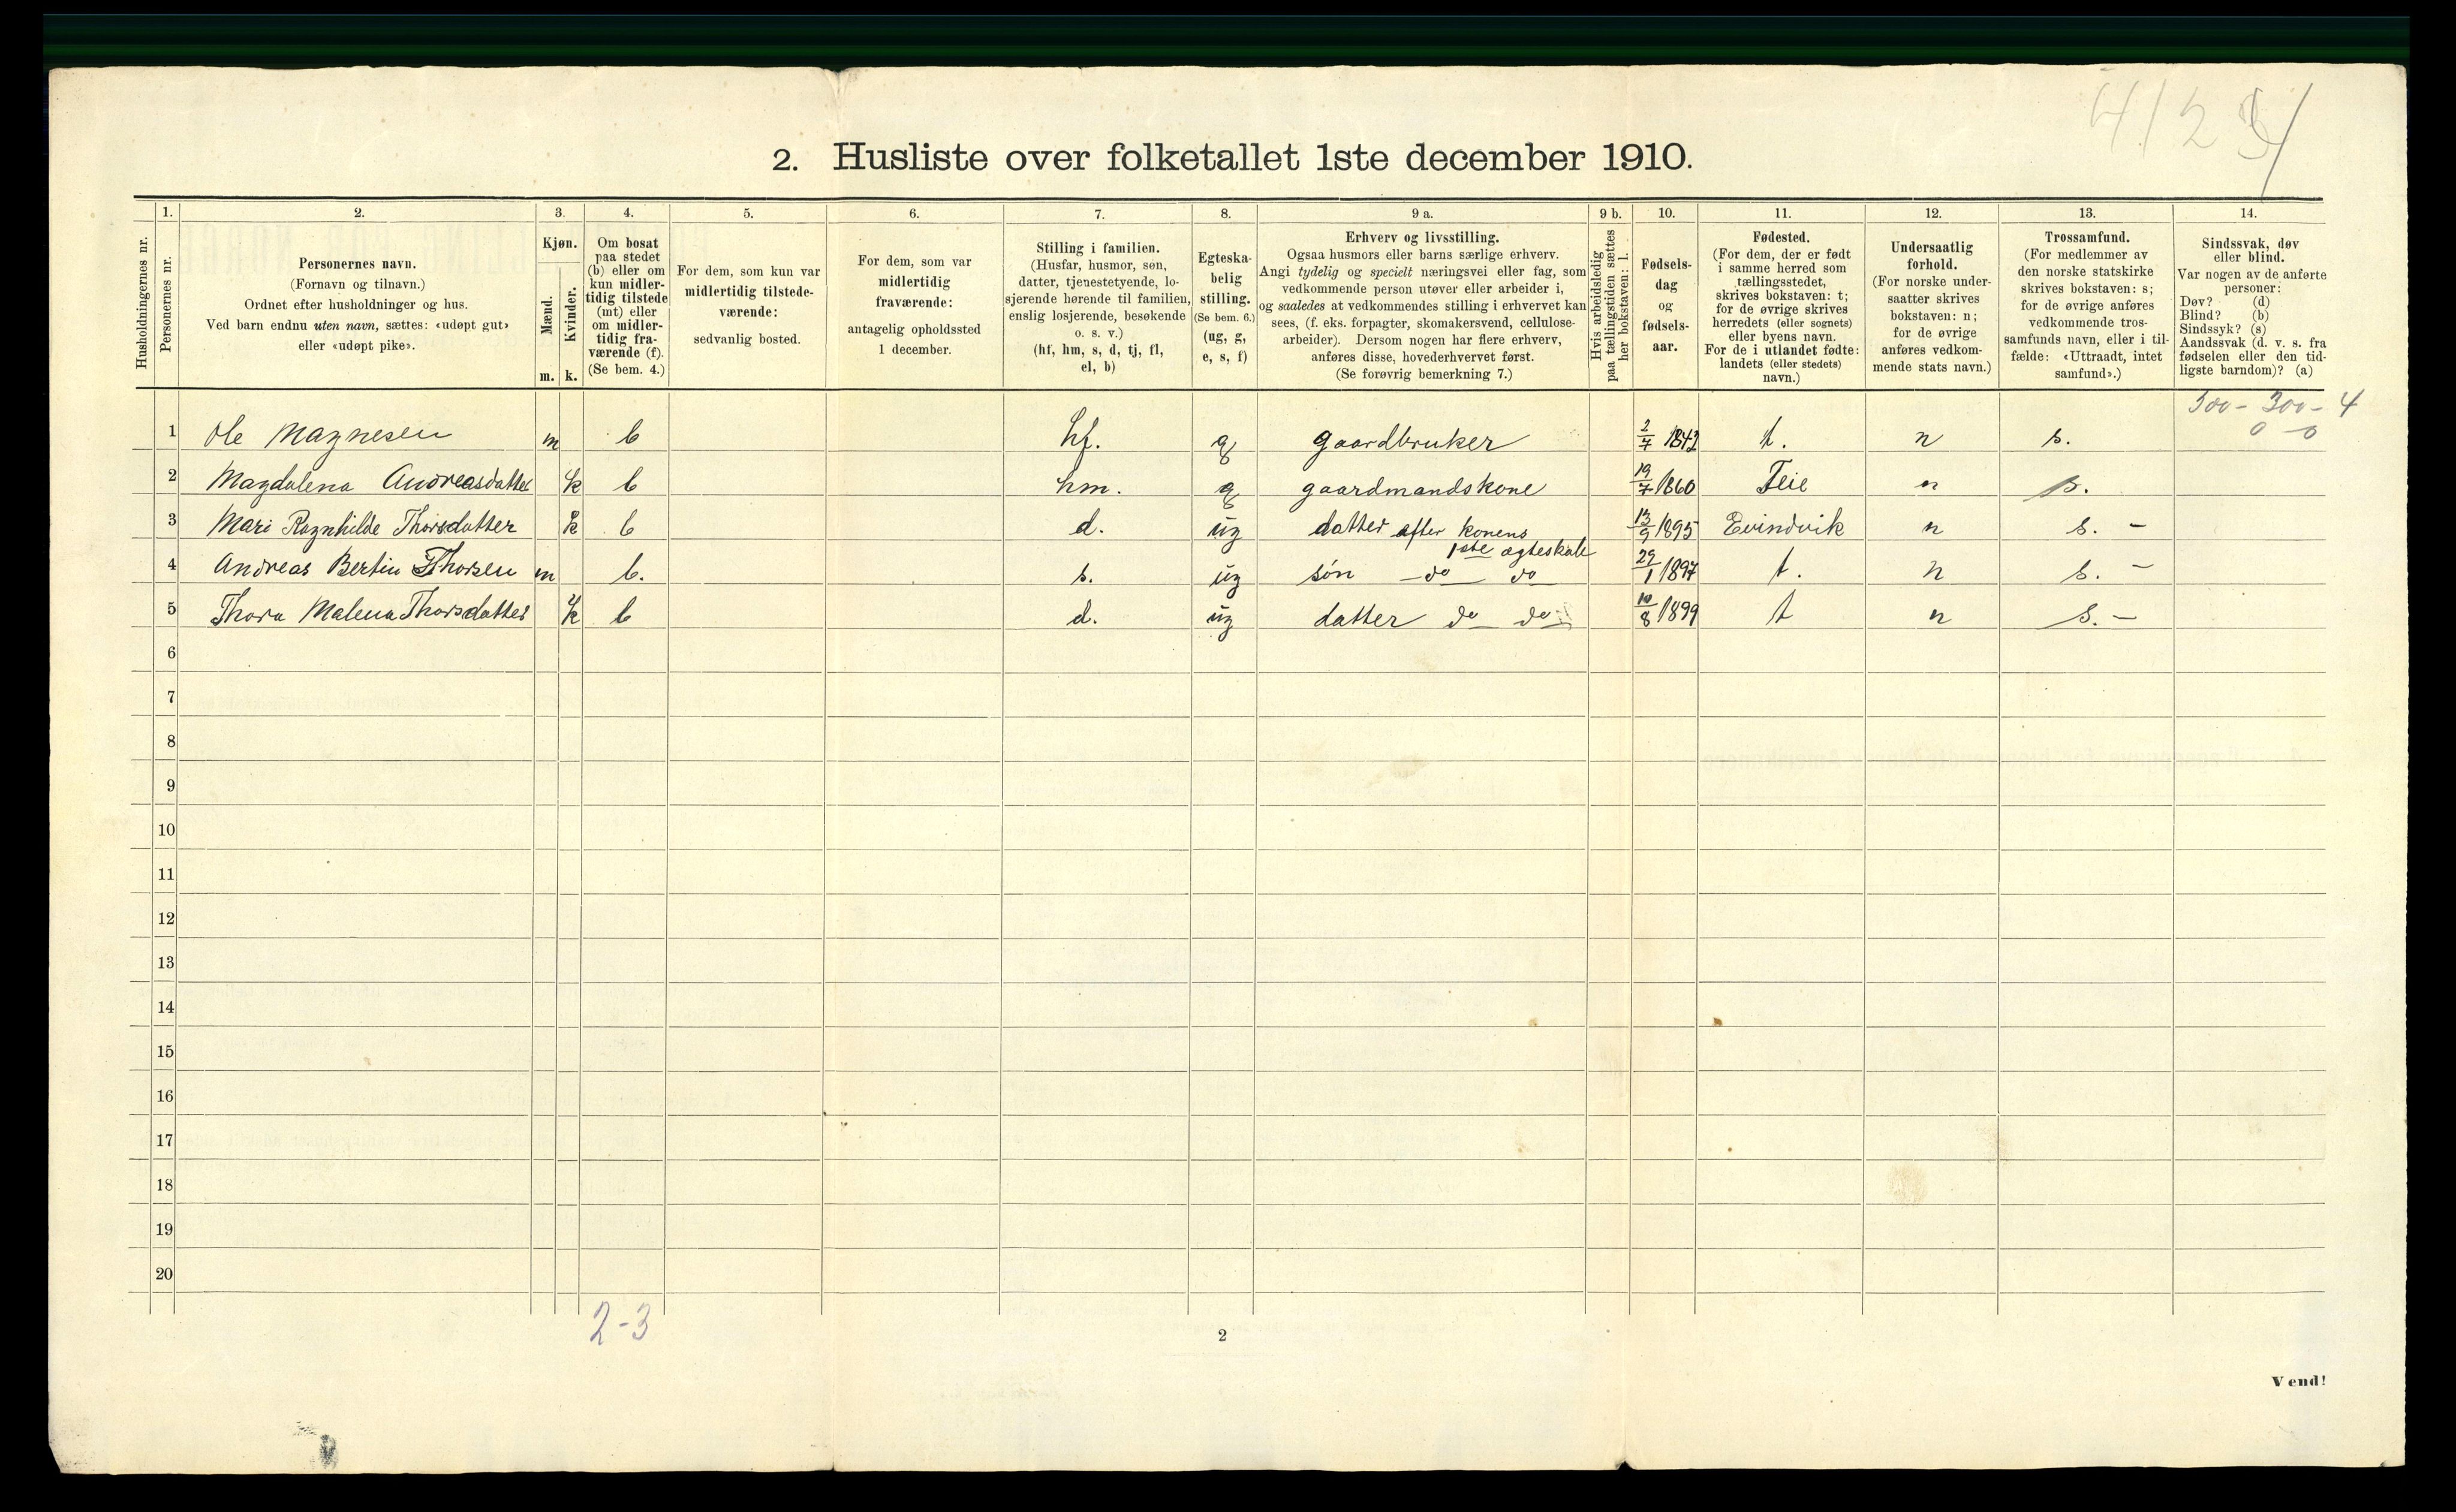 2. Husliste over folketallet 1ste december 1910.
1. 2. 3. 4. 5. 6. 7. 8. 9 a. 9 b. 10. 11. 12. 13. 14.
Husholdningernes nr.
Personernes nr.
Personernes navn.
(Fornavn og tilnavn.)
Ordnet efter husholdninger og hus.
Ved barn endnu uten navn, sættes: «udøpt gut»
eller «udøpt pike».
Kjøn.
Mænd.
Kvinder.
m. k.
Om bosat
paa stedet
(b) eller om
kun midler-
tidig tilstede
(mt) eller
om midler-
tidig fra-
værende (f).
(Se bem. 4.)
For dem, som kun var
midlertidig tilstede-
værende:
sedvanlig bosted.
For dem, som var
midlertidig
fraværende:
antagelig opholdssted
1 december.
Stilling i familien.
(Husfar, husmor, søn,
datter, tjenestetyende, lo-
sjerende hørende til familien,
enslig losjerende, besøkende
o. s. v.)
(hf, hm, s, d, tj, fl,
el, b)
Egteska-
belig
stilling.
(Se bem. 6.)
(ug, g,
e, s, f)
Erhverv og livsstilling.
Ogsaa husmors eller barns særlige erhverv.
Angi tydelig og specielt næringsvei eller fag, som
vedkommende person utøver eller arbeider i,
og saaledes at vedkommendes stilling i erhvervet kan
sees, (f. eks. forpagter, skomakersvend, cellulose-
arbeider). Dersom nogen har flere erhverv,
anføres disse, hovederhvervet først.
(Se forøvrig bemerkning 7.)
Hvis arbeidsledig
paa tællingstiden sættes
her bokstaven: l.
Fødsels-
dag
og
fødsels-
aar.
Fødested.
(For dem, der er født
i samme herred som
tællingsstedet,
skrives bokstaven: t;
for de øvrige skrives
herredets (eller sognets)
eller byens navn.
For de i utlandet fødte:
landets (eller stedets)
navn.)
Undersaatlig
forhold.
(For norske under-
saatter skrives
bokstaven: n;
for de øvrige
anføres vedkom-
mende stats navn.)
Trossamfund.
(For medlemmer av
den norske statskirke
skrives bokstaven: s;
for de øvrige anføres
vedkommende tros-
samfunds navn, eller i til-
fælde: «Uttraadt, intet
samfund».)
Sindssvak, døv
eller blind.
Var nogen av de anførte
personer:
Døv? (d)
Blind? (b)
Sindssyk? (s)
Aandssvak (d. v. s. fra
fødselen eller den tid-
ligste barndom)? (a)
500 - 300 - 4
0 - 0
1 Ole Magnesen m b hf. g gaardbruker 2/7 1842 t. n s.
2 Magdalena Andreasdatter k b hm. g gaardmandskone 19/7 1860 Feie n s.
3 Mari Ragnhilde Thorsdatter k b d. ug datter efter konens 13/9 1895 Evindvik n s. -
1ste egteskab
4 Andreas Bertin Thorsen m b. s. ug søn - do do 29/1 1897 t. n s. -
5 Thora Malena Thorsdatter k b d. ug datter do do 10/8 1899 t n s. -
6
7
8
9
10
11
12
13
14
15
16
17
18
19
20
2-3
2
Vend!